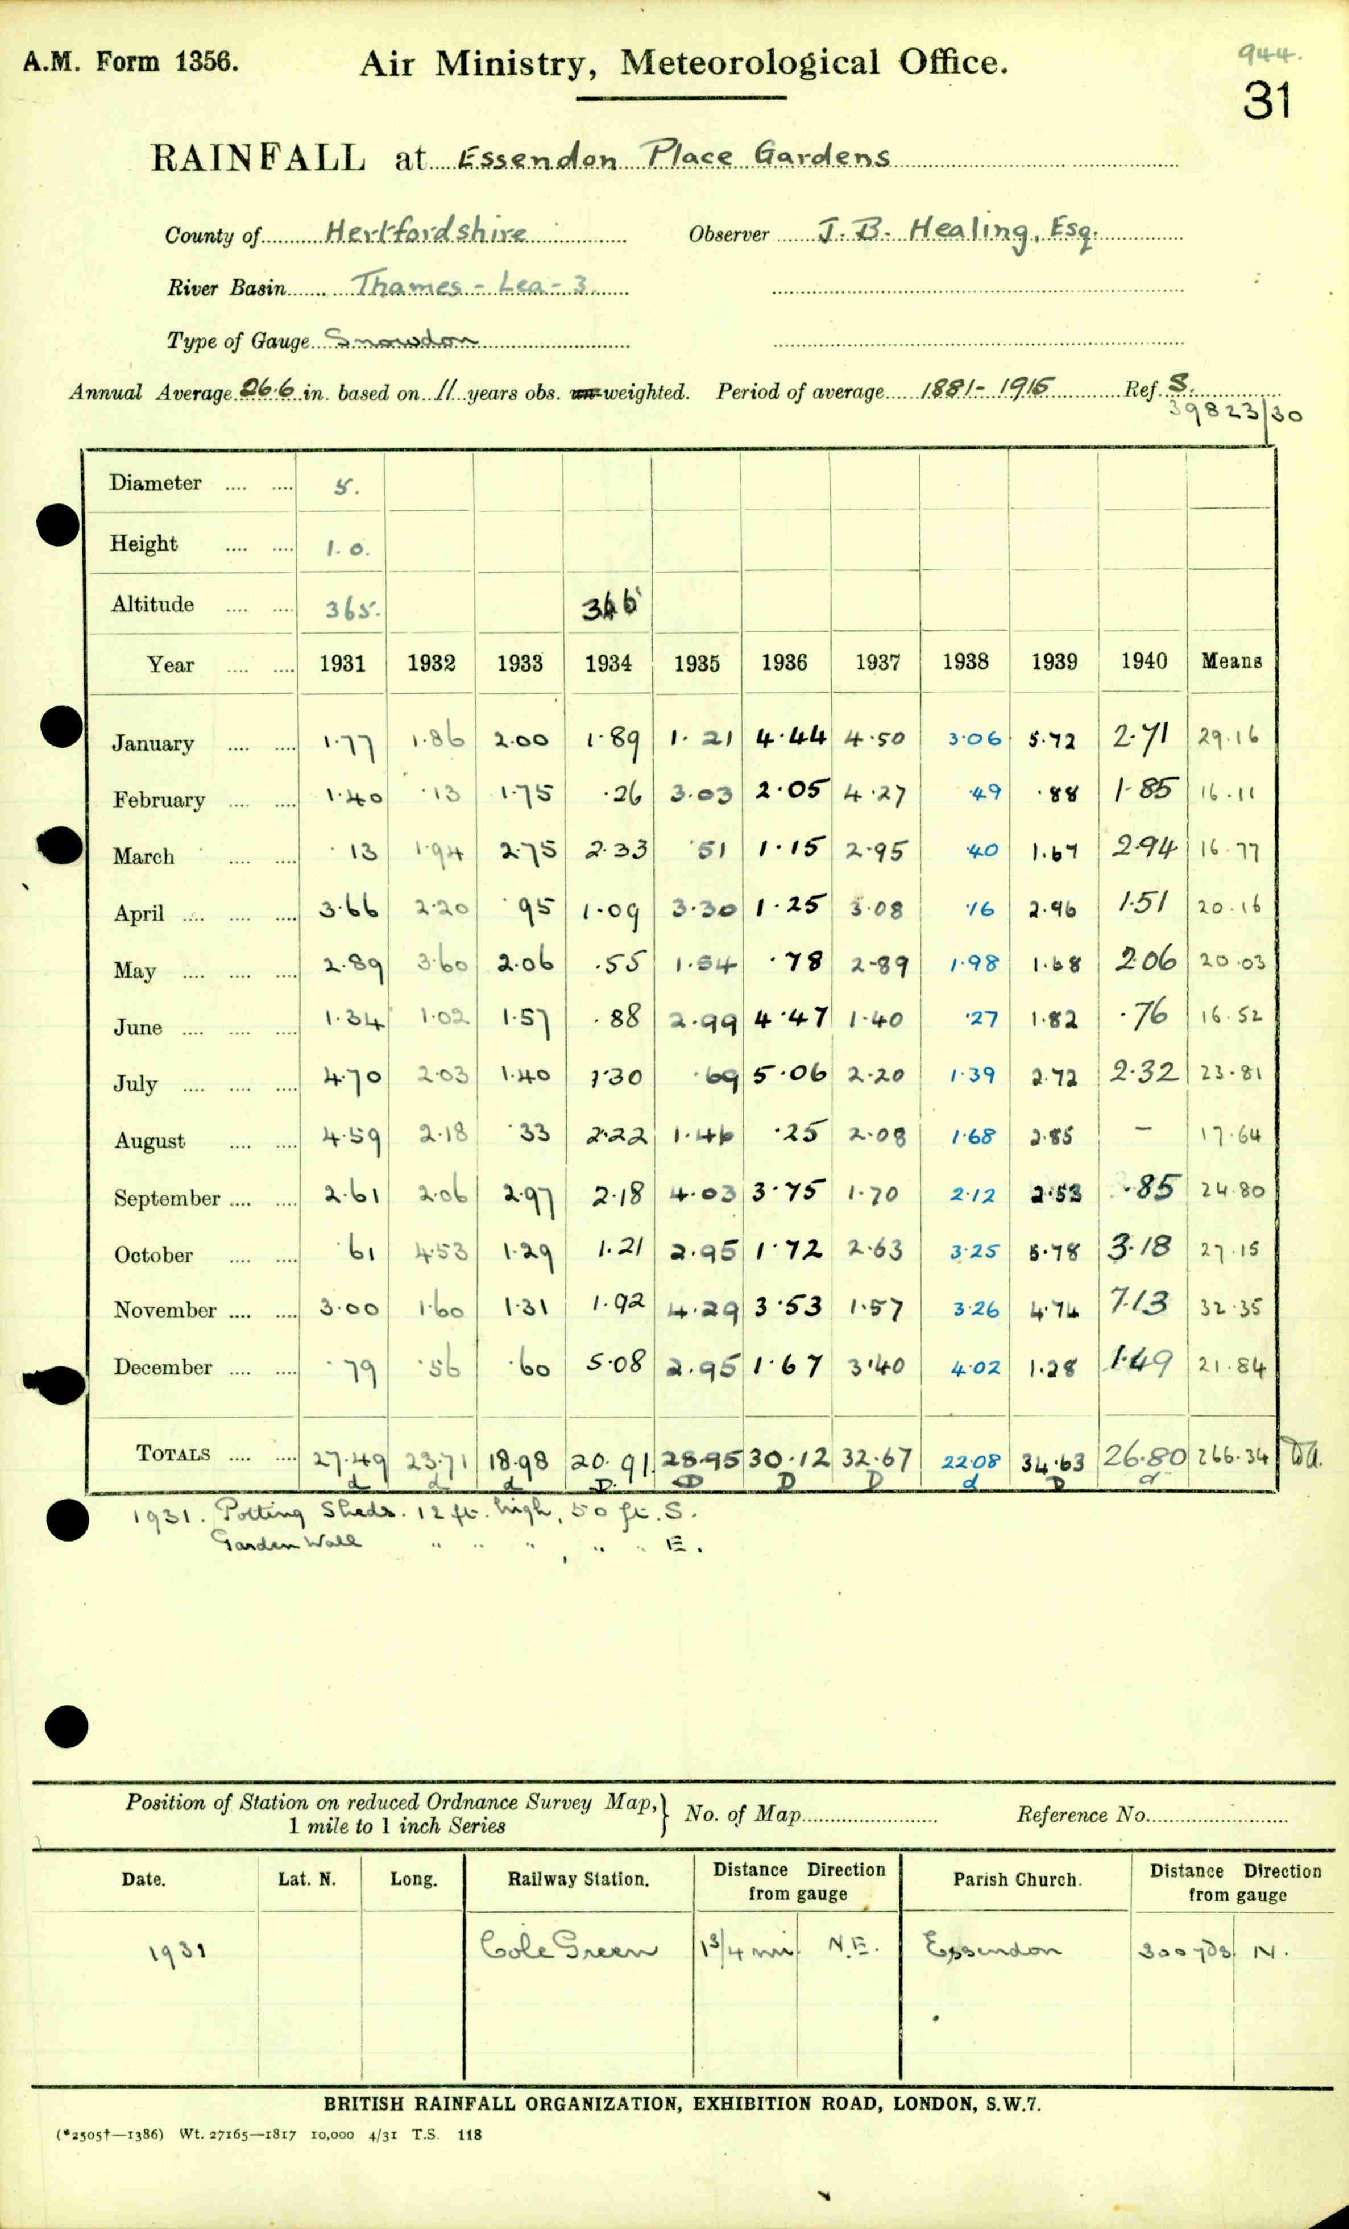 A.M. Form 1356.
Air Ministry, Meteorological Office.
944.
31
RAINFALL at Essendon Place Gardens
County of Hertfordshire Observer J. B. Healing, Esq.
River Basin Thames - Lea - 3
Type of Gauge Snowdon
Annual Average 26.6 in. based on 11 years obs. un-weighted. Period of average 1881-1915 Ref. S.
39823/30
Diameter .... .... 5.
Height .... .... 1.0.
Altitude .... .... 365. 366
Year .... .... 1931 1932 1933 1934 1935 1936 1937 1938 1939 1940 Means
January .... .... 1.77 1.86 2.00 1.89 1.21 4.44 4.50 3.06 5.72 2.71 29.16
February .... .... 1.40 .13 1.75 .26 3.03 2.05 4.27 .49 .88 1.85 16.11
March .... .... .13 1.94 2.75 2.33 .51 1.15 2.95 .40 1.67 2.94 16.77
April .... .... .... 3.66 2.20 .95 1.09 3.30 1.25 3.08 .16 2.96 1.51 20.16
May .... .... .... 2.89 3.60 2.06 .55 1.54 .78 2.89 1.98 1.68 2.06 20.03
June .... .... .... 1.34 1.02 1.57 .88 2.99 4.47 1.40 .27 1.82 .76 16.52
July .... .... .... 4.70 2.03 1.40 1.30 .69 5.06 2.20 1.39 2.72 2.32 23.81
August .... .... 4.59 2.18 .33 2.22 1.46 .25 2.08 1.68 2.85 - 17.64
September .... .... 2.61 2.06 2.97 2.18 4.03 3.75 1.70 2.12 2.53 .85 24.80
October .... .... .61 4.53 1.29 1.21 2.95 1.72 2.63 3.25 5.78 3.18 27.15
November .... .... 3.00 1.60 1.31 1.92 4.29 3.53 1.57 3.26 4.74 7.13 32.35
December .... .... .79 .56 .60 5.08 2.95 1.67 3.40 4.02 1.28 1.49 21.84
TOTALS .... .... 27.49 23.71 18.98 20.91. 28.95 30.12 32.67 22.08 34.63 26.80 266.34
d d d D. D D D d D d
1931. Potting Sheds. 12 ft. high, 50 ft. S.
Garden Wall " " " , " " E.
Position of Station on reduced Ordnance Survey Map, } No. of Map Reference No.
1 mile to 1 inch Series
Date. Lat. N. Long. Railway Station. Distance Direction from gauge Parish Church. Distance Direction from gauge
1931 Cole Green 1 3/4 mi. N.E. Essendon 300 yds N.
BRITISH RAINFALL ORGANIZATION, EXHIBITION ROAD, LONDON, S.W.7.
(*2505†—1386) Wt. 27165—1817 10,000 4/31 T.S. 118